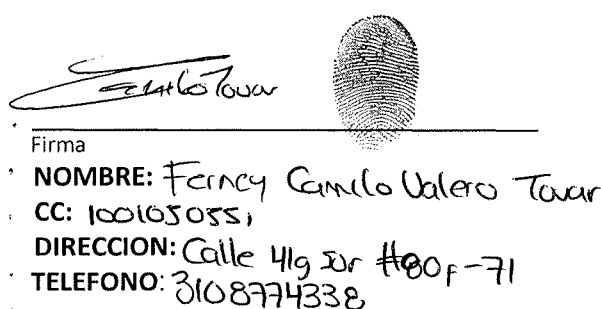 Camilo Tovar
Firma
NOMBRE: Ferney Camilo Valero Tovar
CC: 1001050551
DIRECCION: Calle 41g sur #80F-71
TELEFONO: 3108774338